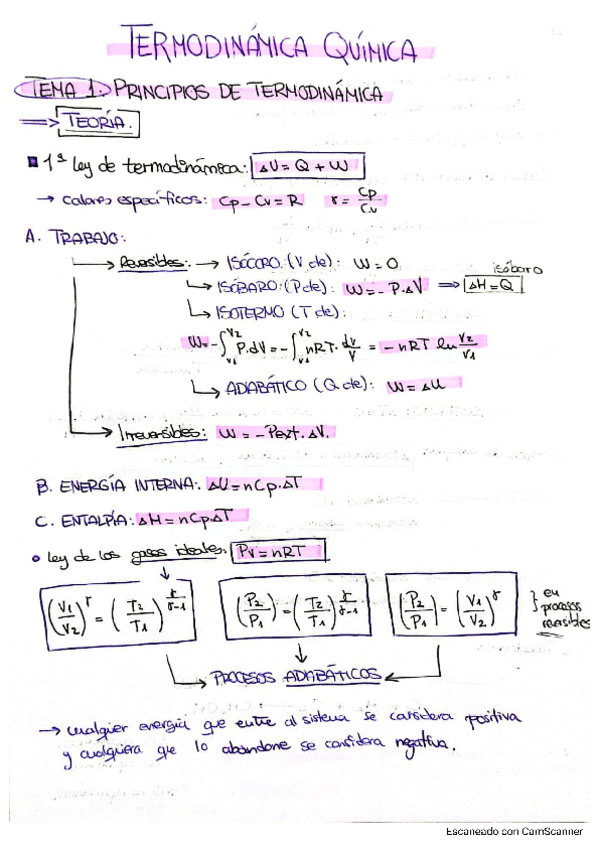 TERMODINÁMICA QUÍMICA
TEMA 1. PRINCIPIOS DE TERMODINÁMICA
⇒ TEORÍA.
1ª ley de termodinámica: ΔU = Q + W
→ calores específicos: Cp - Cv = R γ = Cp/Cv
A. TRABAJO:
→ Reversibles: → ISÓCORO (V cte): W = 0
isóbaro
↳ ISÓBARO (P cte): W = - P·ΔV ⇒ ΔH = Q
↳ ISOTERMO (T cte):
W = -∫_{V1}^{V2} P·dV = -∫_{V1}^{V2} nRT·dV/V = - nRT ln V2/V1
↳ ADIABÁTICO (Q cte): W = ΔU
→ Irreversibles: W = - Pext·ΔV.
B. ENERGÍA INTERNA: ΔU = nCp·ΔT
C. ENTALPÍA: ΔH = nCp·ΔT
ley de los gases ideales: PV = nRT
(V1/V2)^γ = (T2/T1)^(γ/(γ-1)) (P2/P1) = (T2/T1)^(γ/(γ-1)) (P2/P1) = (V1/V2)^γ } en procesos reversibles
→ PROCESOS ADIABÁTICOS ←
→ cualquier energía que entre al sistema se considera positiva
y cualquiera que lo abandone se considera negativa.
Escaneado con CamScanner